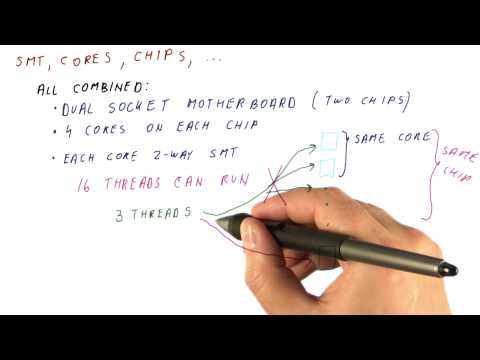 SMT, CORES, CHIPS, ...
ALL COMBINED:
• DUAL SOCKET MOTHERBOARD (TWO CHIPS)
• 4 CORES ON EACH CHIP
• EACH CORE 2-WAY SMT
16 THREADS CAN RUN
3 THREADS
SAME CORE
SAME CHIP